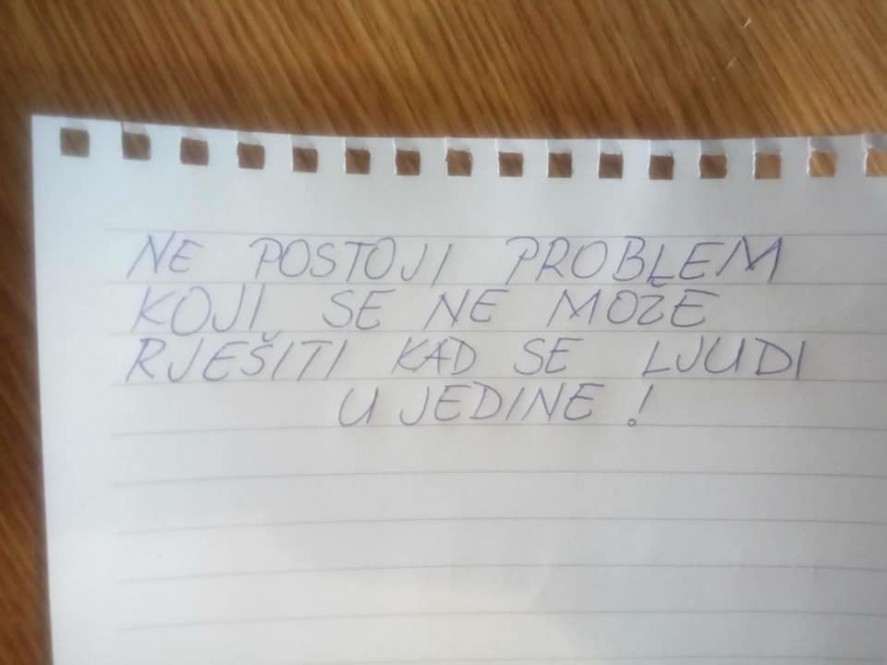 NE POSTOJI PROBLEM
KOJI SE NE MOŽE
RJEŠITI KAD SE LJUDI
UJEDINE!